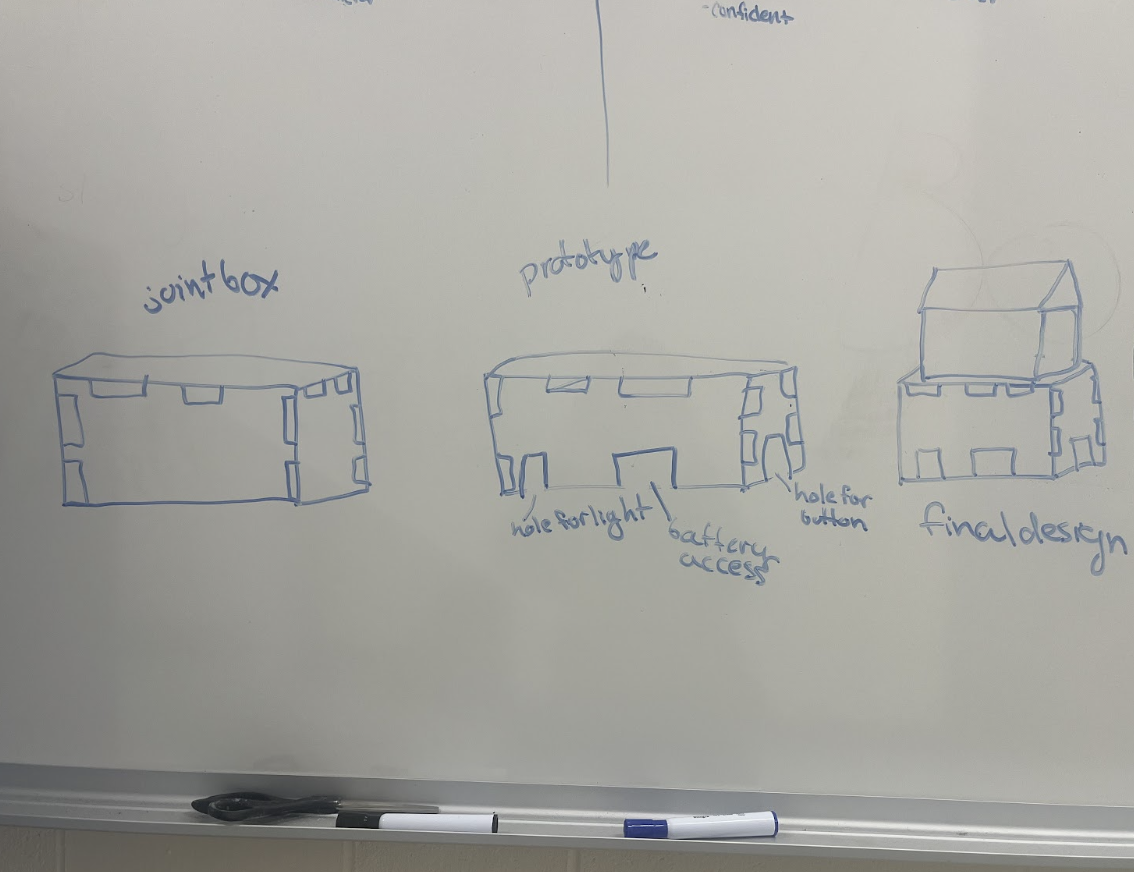 -confident
joint box
prototype
hole for light
battery
access
hole for
button
final design